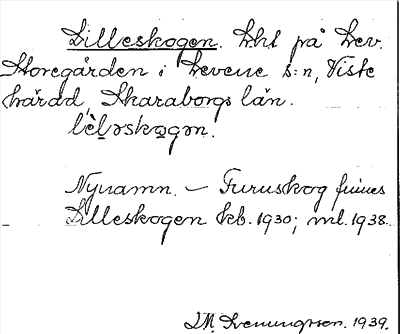 Lilleskogen. Lht på Lev.
Storegården i Levene s:n, Viste
härad, Skaraborgs län.
lèləskøgən.
Nynamn. – Furuskog finnes
Lilleskogen kb. 1930; ml. 1938.
1939.